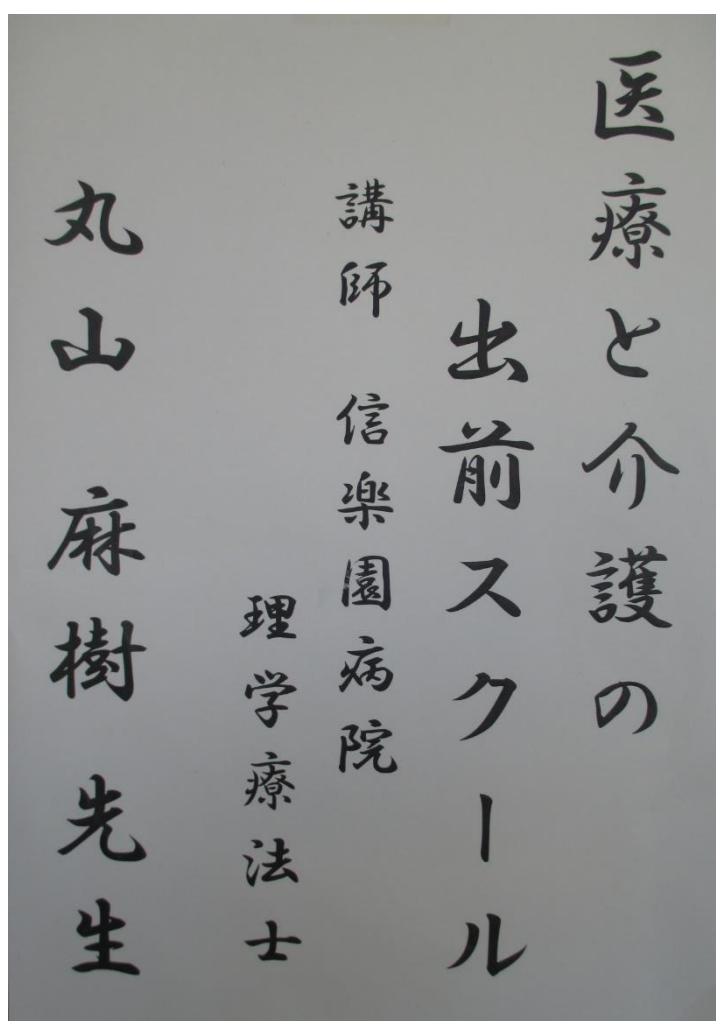 医療と介護の
出前スクール
講師 信楽園病院
理学療法士
丸山 麻樹 先生